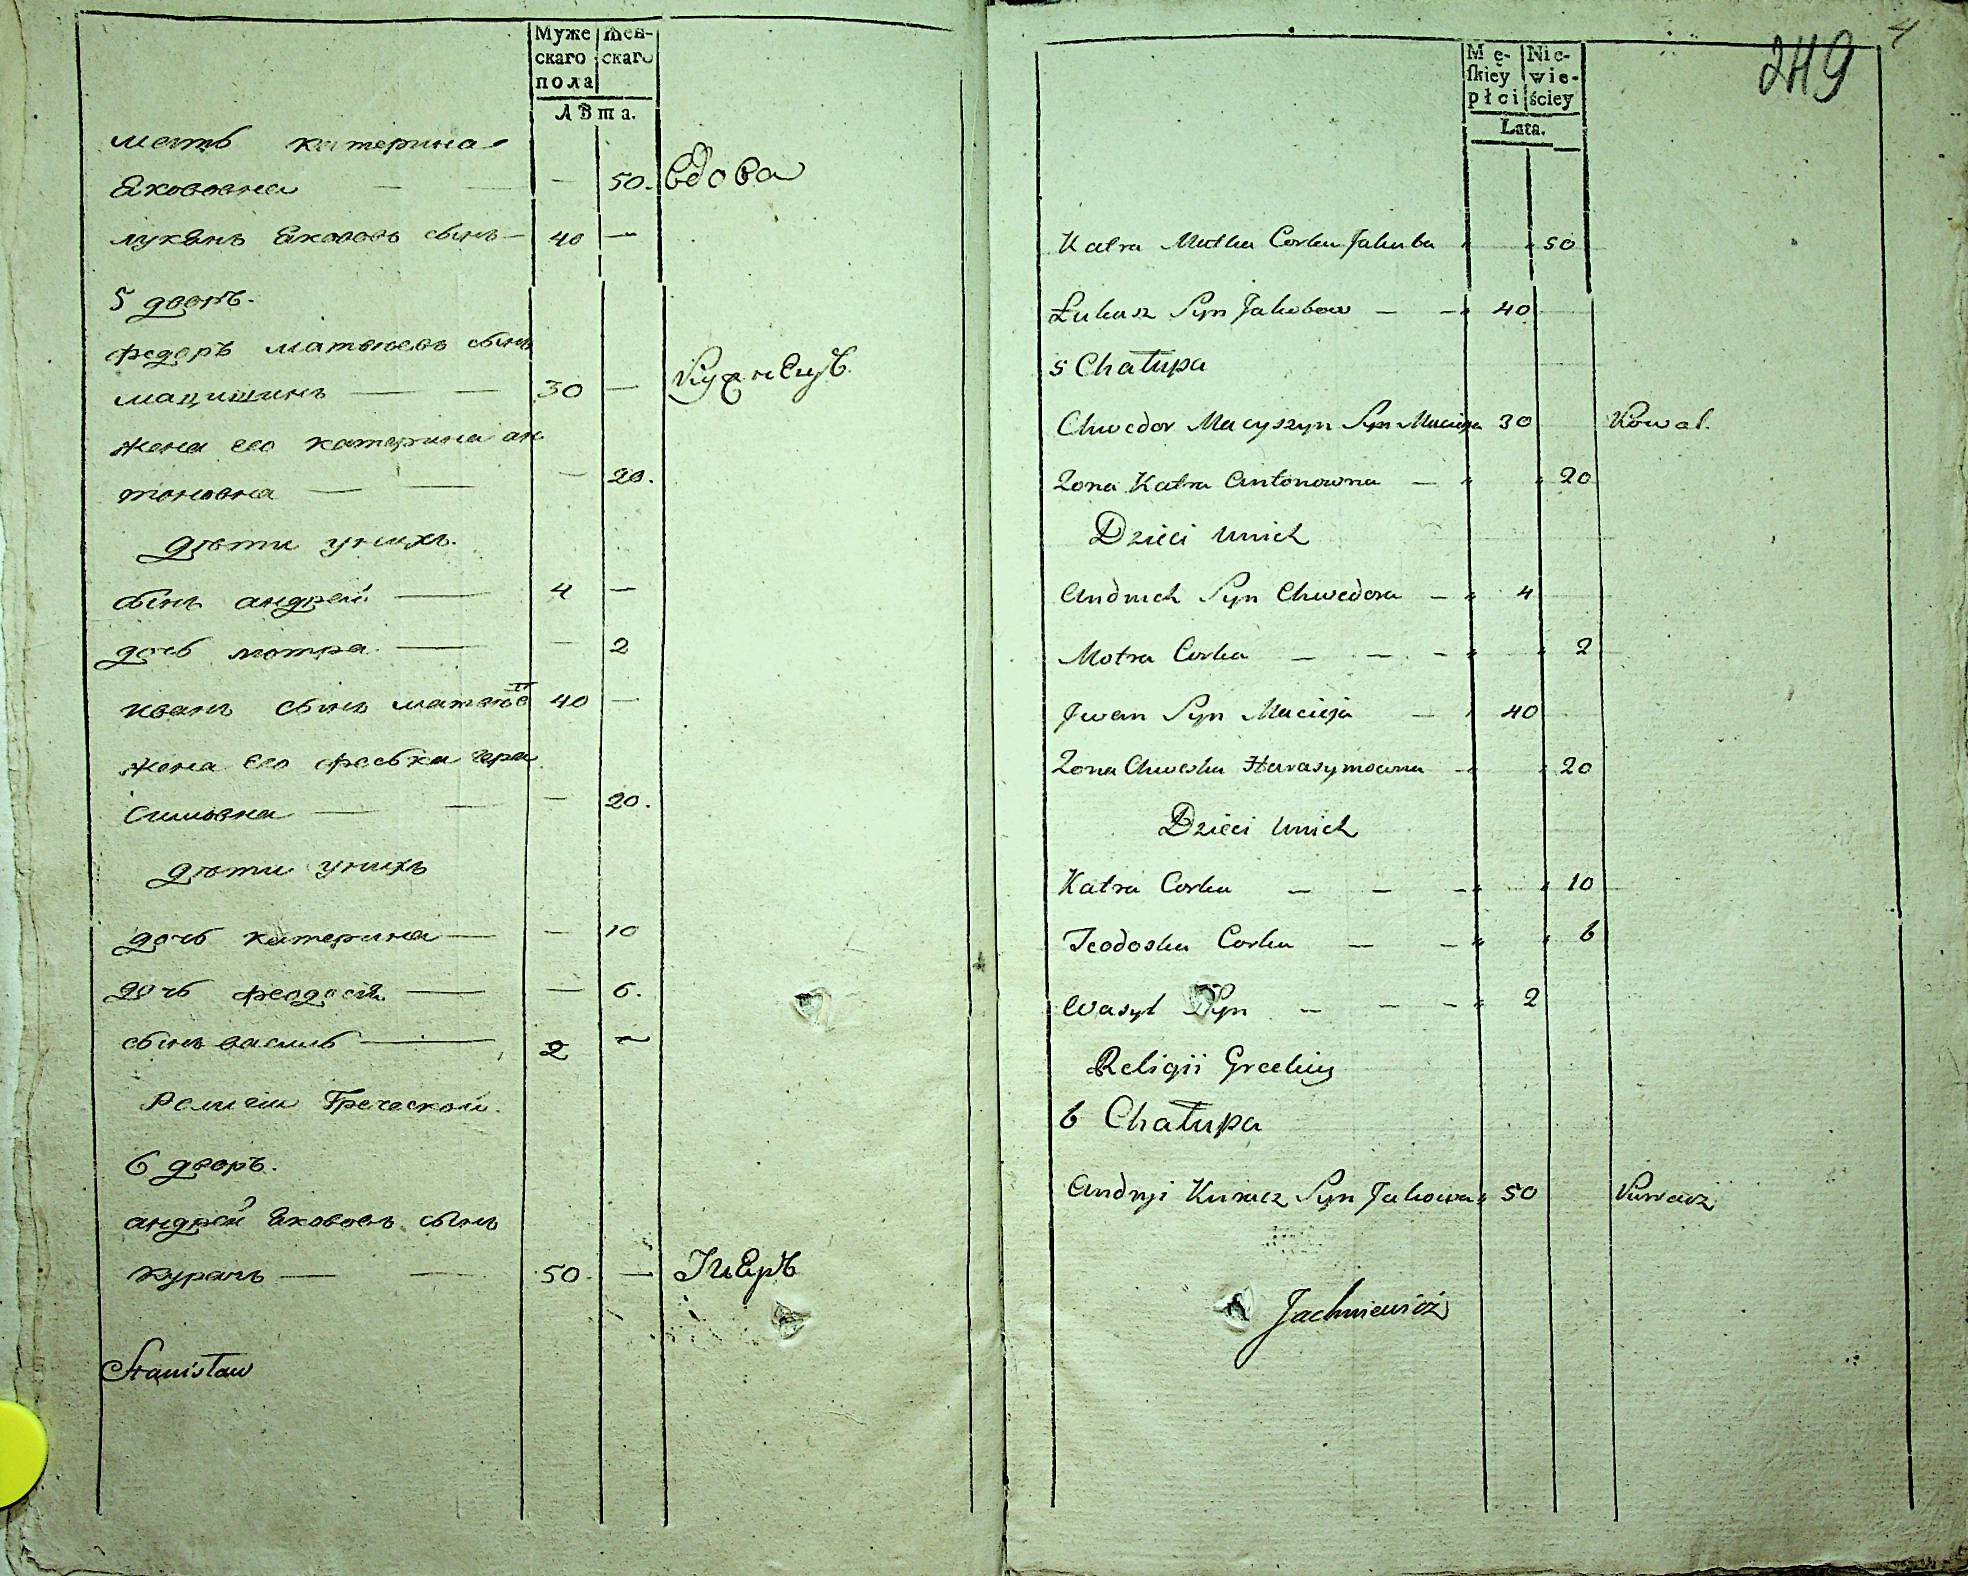 Муже
скаго
пола
Жен-
скаго
Лѣта.
мать катерина
Якововна — — — 50. вдова
лукянъ Якововъ сынъ — 40 —
5 дворъ.
федоръ матвѣевъ сынъ
мацишинъ — — 30 —
жена его катерина ан
тоновна — — — 20.
дѣти унихъ.
сынъ андрей — 4 —
дочь мотра — — 2
иванъ сынъ матвѣе 40 —
жена его феська гера
симовна — — — 20.
дѣти унихъ
дочь катерина — — 10
дочь феодося — — 6.
сынъ василь — 2 —
Религии Греческой.
6 дворъ.
андрей Якововъ сынъ
курачъ — — 50. —
Stanisław
4
249
Mę-
skiey
płci
Nie-
wie-
ściey
Lata.
Katra Matka Corka Jakuba " " 50
Łukasz Syn Jakobow — — " 40
5 Chałupa
Chwedor Macyszyn Syn Macieja 30 Kowal.
Zona Katra Antonowna — " " 20
Dzieci unich
Andruch Syn Chwedora — " 4
Motra Corka — — — " " 2
Jwan Syn Macieja — " 40
Zona Chweska Harasymowna — " " 20
Dzieci unich
Katra Corka — — — " " 10
Teodoska Corka — — " " 6
Wasyl Syn — — — " 2
Religii Greckiey
6 Chałupa
Andryi Kuracz Syn Jakowa " 50
Jachniewicz